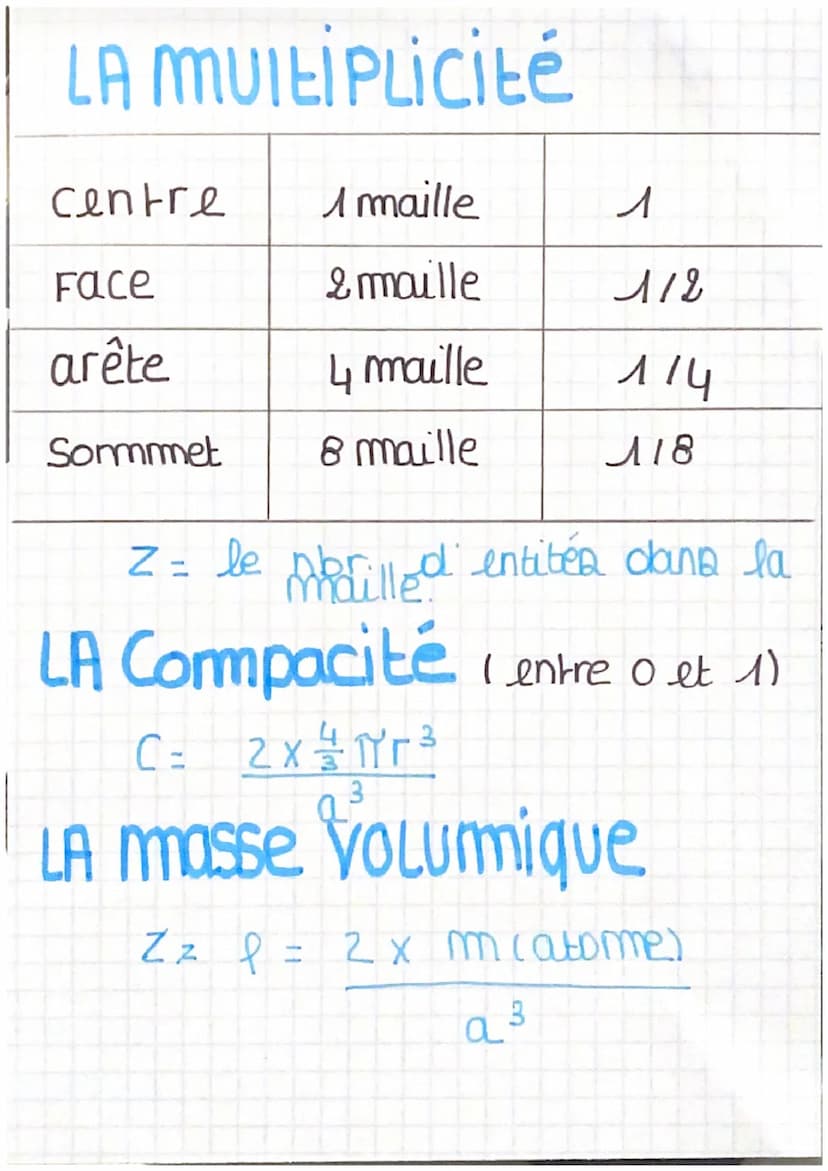 LA MULTIPLICITÉ
centre 1 maille 1
Face 2 maille 1/2
arête 4 maille 1/4
Sommet 8 maille 1/8
Z = le nbr d'entités dans la
maille.
LA Compacité (entre 0 et 1)
C = 2 x 4/3 πr³
a³
LA masse volumique
Zz ρ = 2 x m(atome)
a³